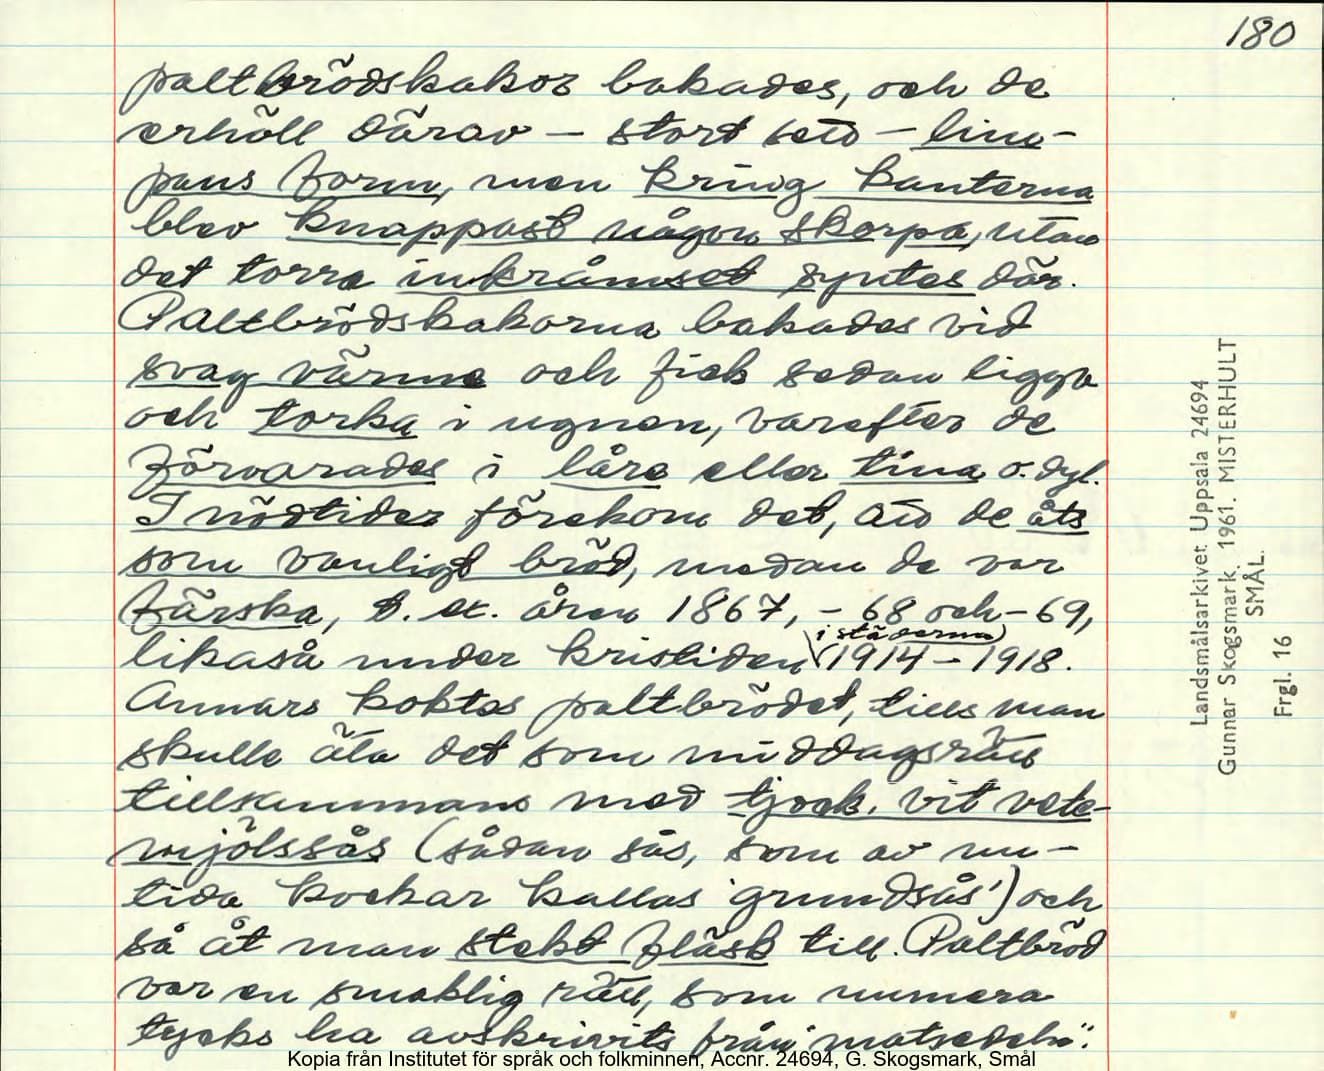 180
paltbrödskakor bakades, och de
erhöll därav – stort sett – lim-
pans form, men kring kanterna
blev knappast någon skorpa, utan
det torra inkråmset syntes där.
Paltbrödskakorna bakades vid
svag värme och fick sedan ligga
och torka i ugnen, varefter de
förvarades i låre eller tina o. dyl.
I nödtider förekom det, att de åts
som vanligt bröd, medan de var
färska, t. ex. åren 1867, -68 och -69,
likaså under kristiden (i städerna) 1914 – 1918.
Annars koktes paltbrödet, tills man
skulle äta det som middagsrätt
tillsammans med tjock, vit vete-
mjölssås (sådan sås, som av nu-
tida kockar kallas 'grundsås') och
så åt man stekt fläsk till. Paltbröd
var en smaklig rätt, som numera
tycks ha avskrivits från "matsedeln".
Landsmålsarkivet Uppsala 24694
Gunnar Skogsmark. 1961. MISTERHULT
SMÅL.
Frgl. 16
Kopia från Institutet för språk och folkminnen, Accnr. 24694, G. Skogsmark, Smål